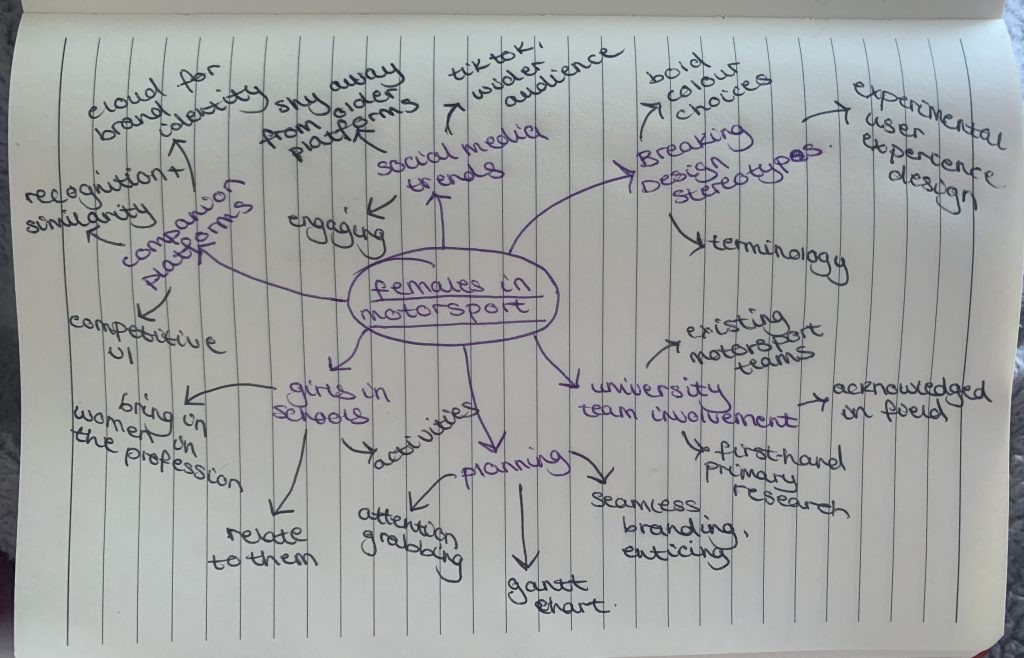 females in
motorsport
social media
trends
tiktok,
wider
audience
shy away
from older
platforms
engaging
Breaking
Design
stereotypes.
bold
colour
choices
experimental
user
experience
design
terminology
university
team involvement
existing
motorsport
teams
acknowledged
in field
first-hand
primary
research
planning
seamless
branding,
enticing
gantt
chart.
attention
grabbing
girls in
schools
activities
relate
to them
bring in
women in
the profession
companion
platforms
cloud for
brand
identity
recognition +
similarity
competitive
UI